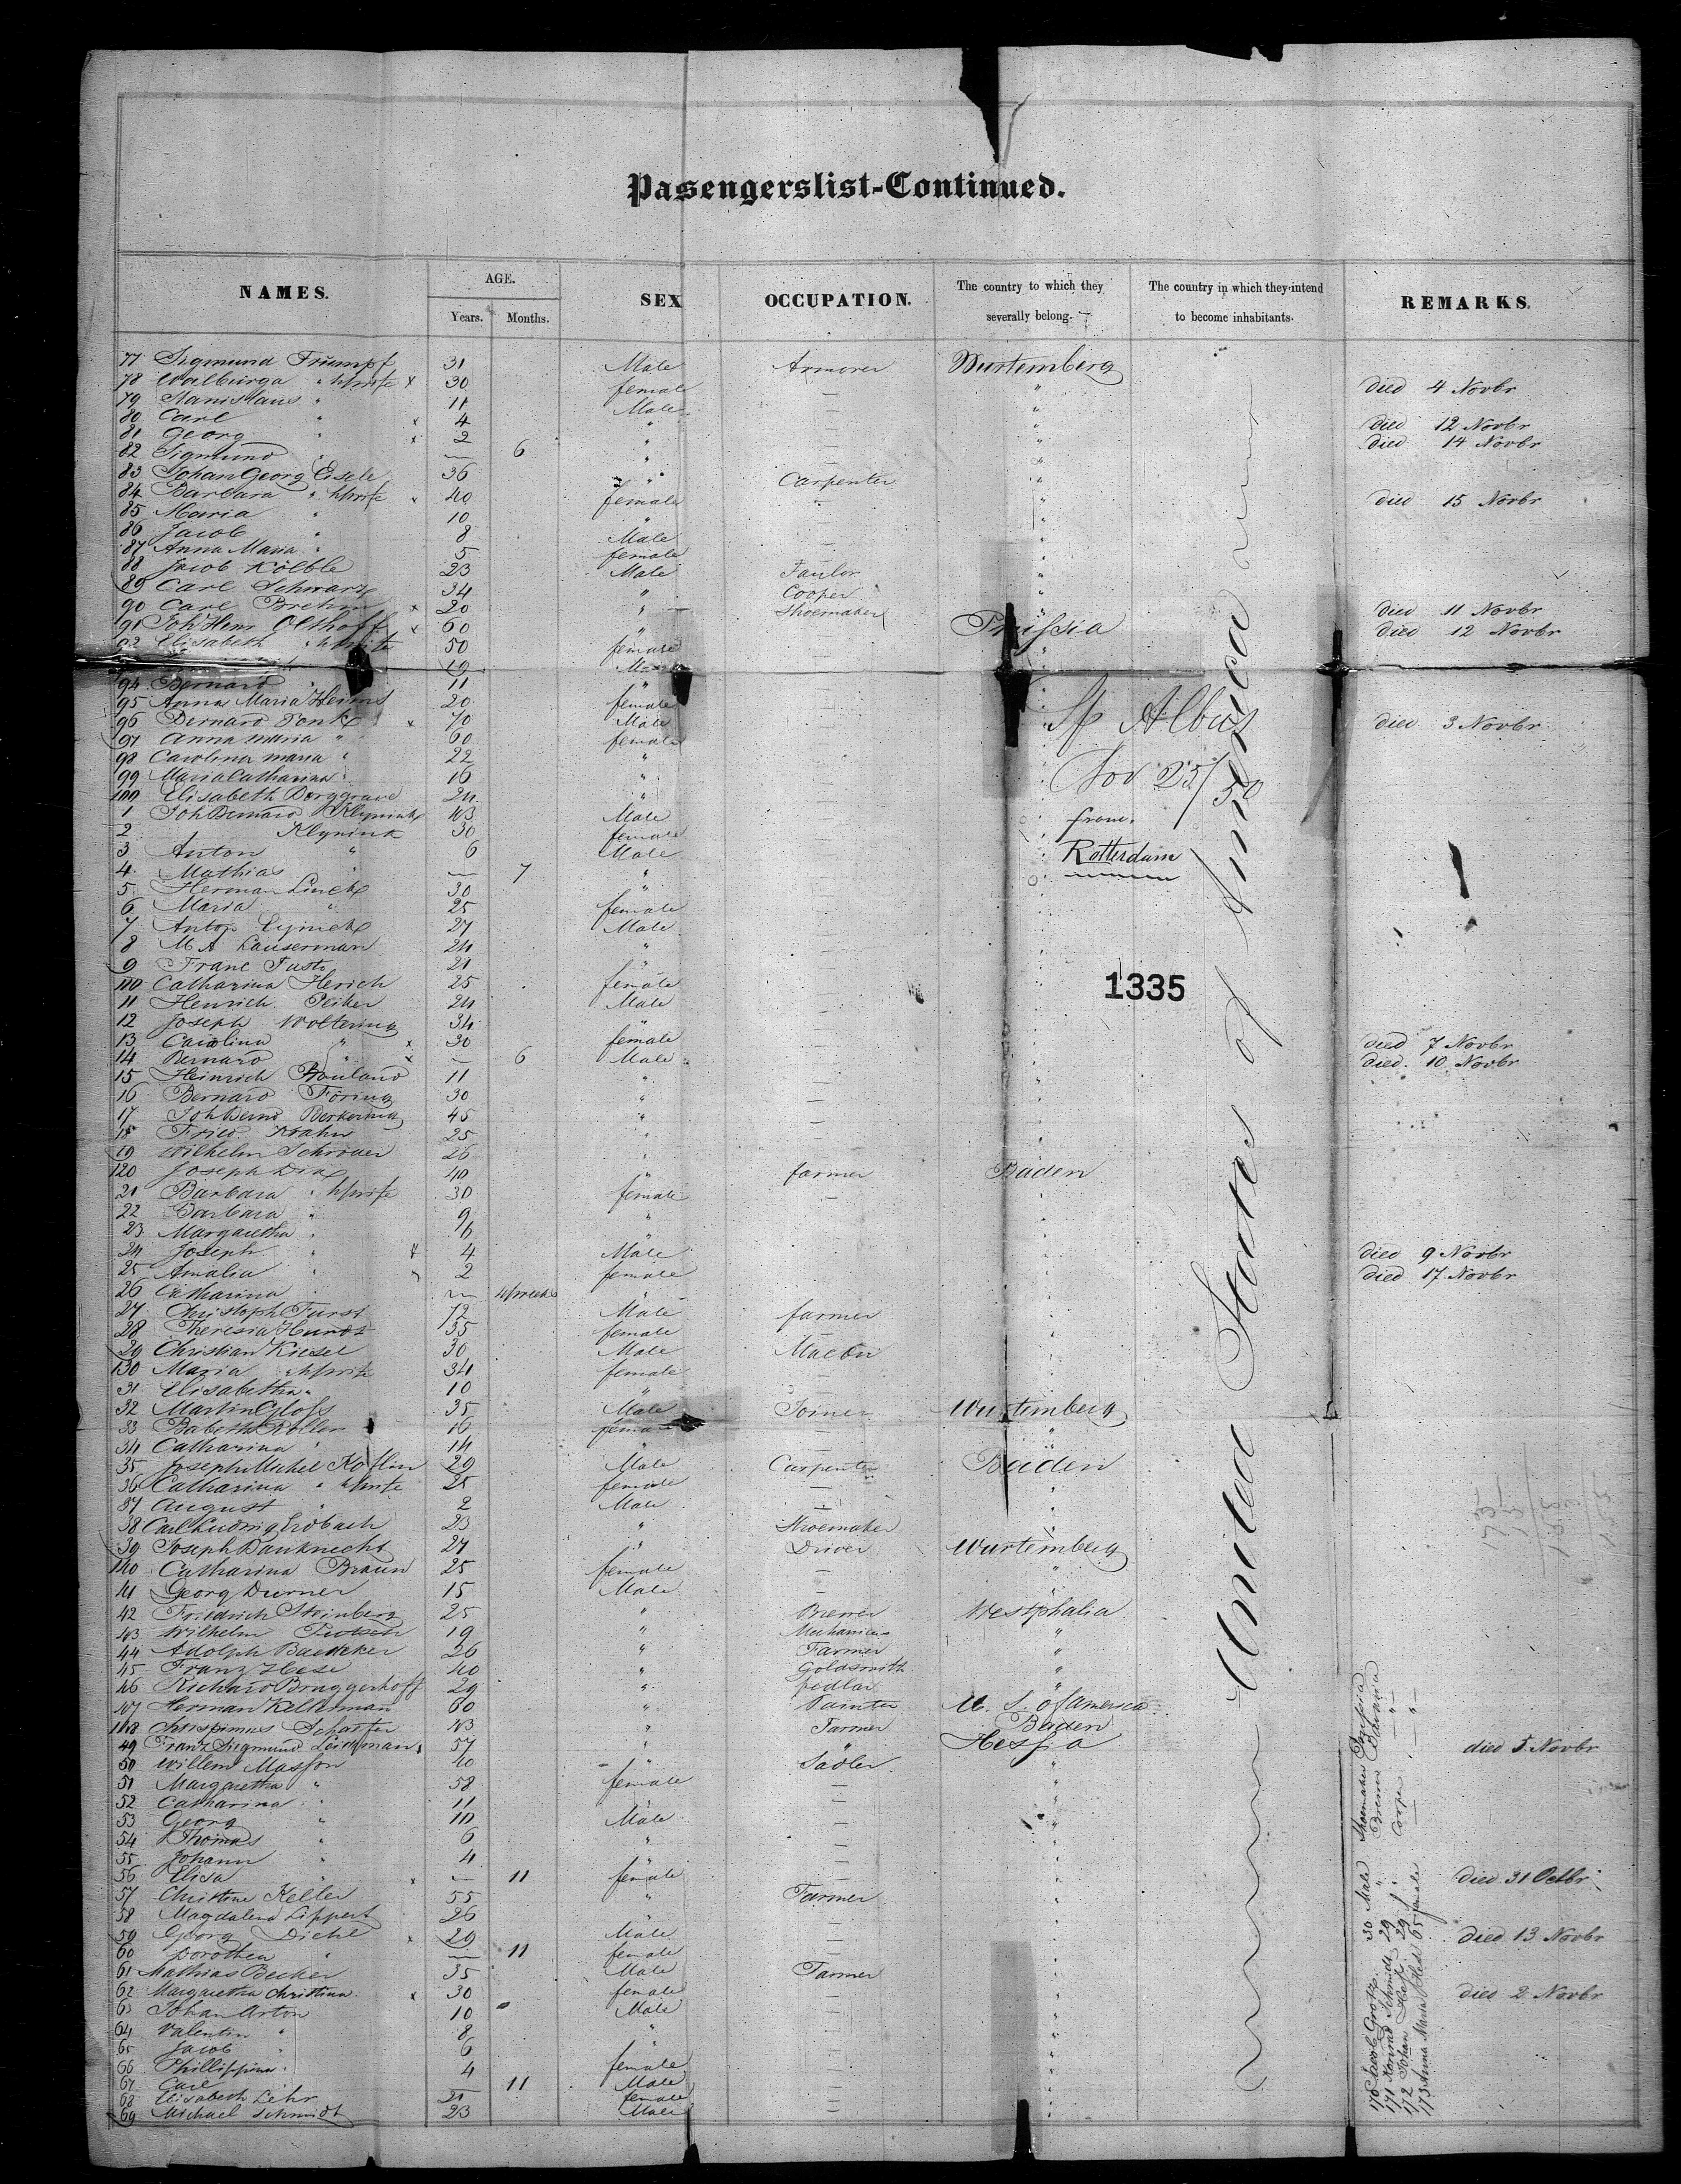 Pasengerslist-Continued.
NAMES. AGE. SEX OCCUPATION. The country to which they severally belong. The country in which they intend to become inhabitants. REMARKS.
Years. Months.
77 Sigmund Triumpf 31 Male Armorer Wurtemberg
78 Walburga " h/wife x 30 female — " died 4 Novbr
79 Stanislaus " 11 Male — "
80 Carl " x 4 " — " died 12 Novbr
81 Georg " x 2 " — " died 14 Novbr
82 Sigmund " — 6 " — "
83 Johan Georg Eisele 36 " Carpenter "
84 Barbara " h/wife x 40 female — " died 15 Novbr
85 Maria " 10 " — "
86 Jacob " 8 Male — "
87 Anna Maria " 5 female — "
88 Jacob Kölble 23 Male Taulor "
89 Carl Schwarz 34 " Cooper "
90 Carl x 20 " Shoemaker " died 11 Novbr
91 Joh Henr Olthoff x 60 " — Prussia died 12 Novbr
92 Elisabeth " h/wife 50 female — "
19 Male
94 Bernard " 11 " — "
95 Anna Maria 20 female — "
96 Bernard x 70 Male — " died 3 Novbr
97 Anna Maria " 60 female — "
98 Carolina Maria " 22 " — "
99 Maria Catharina " 16 " — "
100 Elisabeth Borggrave 24 " — "
1 Joh Bernard 43 Male — "
2 Klynina 30 female — "
3 Anton " 6 Male — "
4 Mathias " — 7 " — "
5 Herman 30 " — "
6 Maria " 25 female — "
7 Anton 27 Male — "
8 M A Lauserman 24 " — "
9 Franc Justo 21 " — "
110 Catharina Herich 25 female — "
11 Henrich Peiker 24 Male — "
12 Joseph Woltering 34 " — "
13 Carolina " x 30 female — " died 7 Novbr
14 Bernard " x — 6 Male — " died 10 Novbr
15 Heinrich 11 " — "
16 Bernard Föring 30 " — "
17 Joh Bernd Berkering 45 " — "
18 Fried Krahn 25 " "
19 Wilhelm Schröuer 26 " "
120 Joseph 40 " farmer Baden
21 Barbara " h/wife 30 female — "
22 Barbara " 9 " "
23 Margaretha " 6 " "
24 Joseph " x 4 Male " died 9 Novbr
25 Amalia " 2 female " died 17 Novbr
26 Catharina — 4 weeks " "
27 Christoph Furst 72 Male farmer "
28 Theresia Hundt 35 female — "
29 Christian Kiesel 30 Male Macon "
130 Maria " h/wife 34 female — "
31 Elisabetha " 10 " — "
32 Martin Gloss 35 Male Joiner Wurtemberg
33 Babetha Roller 16 female — "
34 Catharina " 14 " — "
35 Joseph Michel 29 Male Carpenter Baden
36 Catharina " h/wife 25 female — "
37 August " 2 Male — "
38 Carl Ludwig Erdbach 23 " Shoemaker "
39 Joseph Bauknecht 27 " Driver Wurtemberg
140 Catharina Braun 25 female — "
41 Georg Durner 15 Male — "
42 Friedrich Steinberg 25 " Brewer Westphalia
43 Wilhelm 19 " Mechanicus "
44 Adolph Baedeker 26 " Farmer "
45 Franz Hese 40 " Goldsmith "
46 Richard Bruggerhoff 29 " pedlar "
47 Herman Kellerman 60 " Painter U. S. of America
148 Crispinus Schaefer 43 " Farmer Baden
49 Franz Siegmund 57 " " Hessia died 5 Novbr
50 Willem Masson 40 " Sadler "
51 Margaretha " 58 female — "
52 Catharina " 11 " — "
53 Georg " 10 Male — "
54 Thomas " 6 " — "
55 Johann " 4 " — "
56 Elisa " x — 11 female — " died 31 Octbr
57 Christine Keller 55 " Farmer "
58 Magdalena Lippert 26 " — "
59 Georg Diehl x 29 Male — " died 13 Novbr
60 Dorothea " — 11 female — "
61 Mathias Becker 35 Male Farmer "
62 Margaretha Christina x 30 female — " died 2 Novbr
63 Johan Arton 10 Male — "
64 Valentin " 8 " — "
65 Jacob " 6 " — "
66 Phillippina " 4 female — "
67 Carl " — 11 Male — "
68 Elisabeth Lehr 21 female — "
69 Michael Schmidt 23 Male — "
Sp Albus
Nov 25/50
from
Rotterdam
1335
United States of America
170 Jacob 30 Male Shoemaker Prussia
171 Konrad Schmidt 29 " Brewer Bavaria
172 Johan 29 " Cooper — " —
173 Anna Maria 65 female — — " —